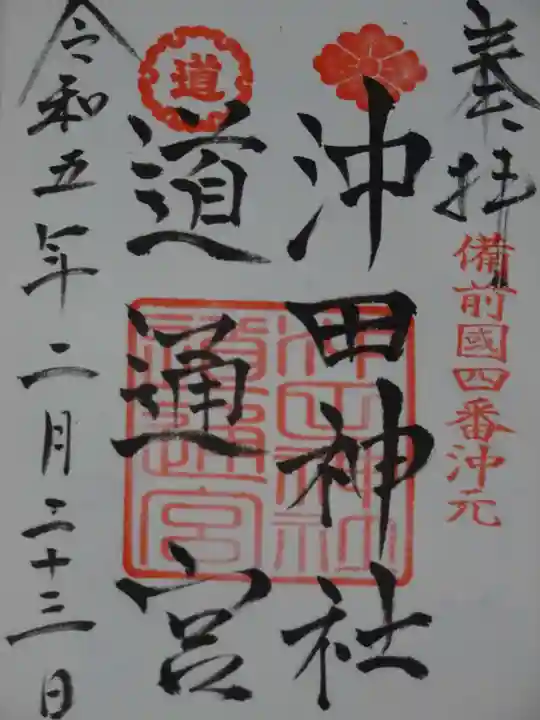 奉拝
備前國四番沖元
沖田神社
道通宮
道
沖田神社
道通宮
令和五年二月二十三日